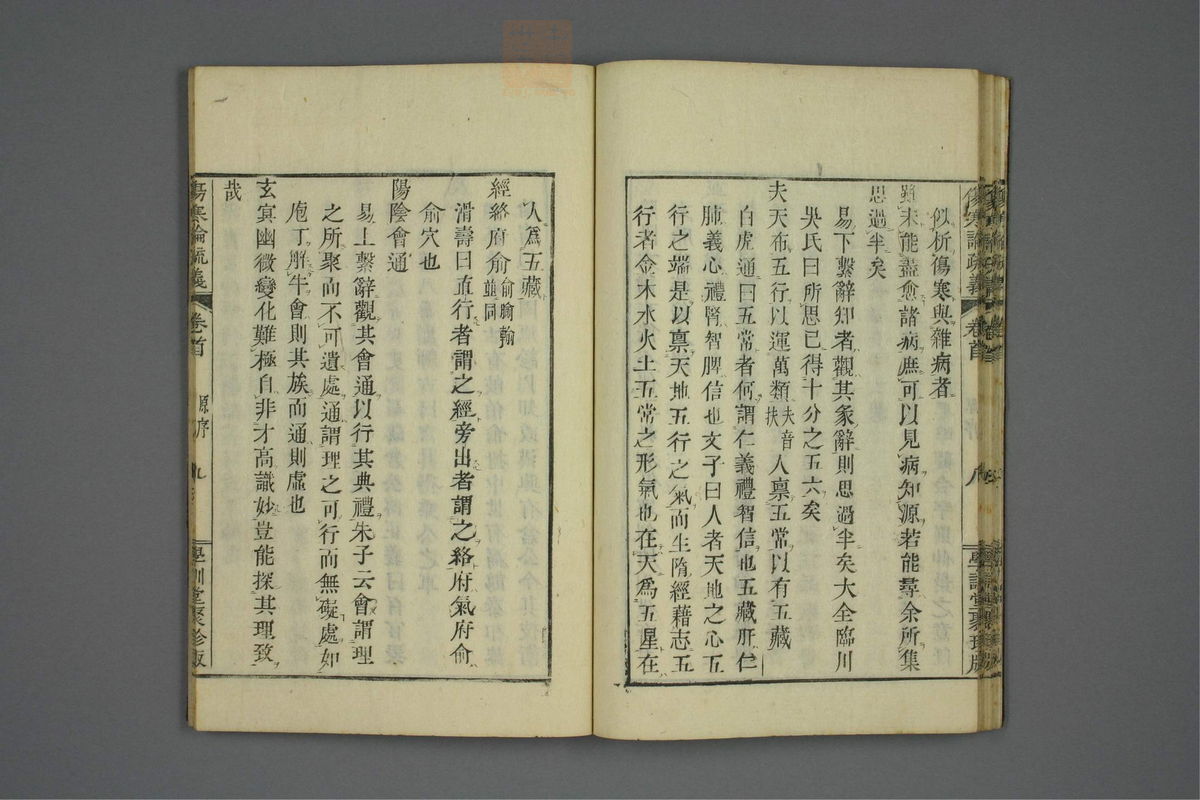 傷寒論疏義
卷首
八
學訓堂聚珍版
似析傷寒與雜病者
雖未能盡愈諸病庶可以見病知源若能尋余所集
思過半矣
易下繫辭知者觀其彖辭則思過半矣大全臨川
吳氏曰所思已得十分之五六矣
夫天布五行以運萬類夫音扶人稟五常以有五藏
白虎通曰五常者何謂仁義禮智信也五藏肝仁
肺義心禮腎智脾信也文子曰人者天地之心五
行之端是以稟天地五行之氣而生隋經藉志五
行者金木水火土五常之形氣也在天爲五星在
人爲五藏
經絡府俞俞腧並同
滑壽曰直行者謂之經旁出者謂之絡府氣府俞
俞穴也
陽陰會通
易上繫辭觀其會通以行其典禮朱子云會謂理
之所聚而不可遺處通謂理之可行而無礙處如
庖丁解牛會則其族而通則虛也
玄冥幽微變化難極自非才高識妙豈能探其理致
哉
傷寒論疏義
卷首
原序
九
學訓堂聚珍版